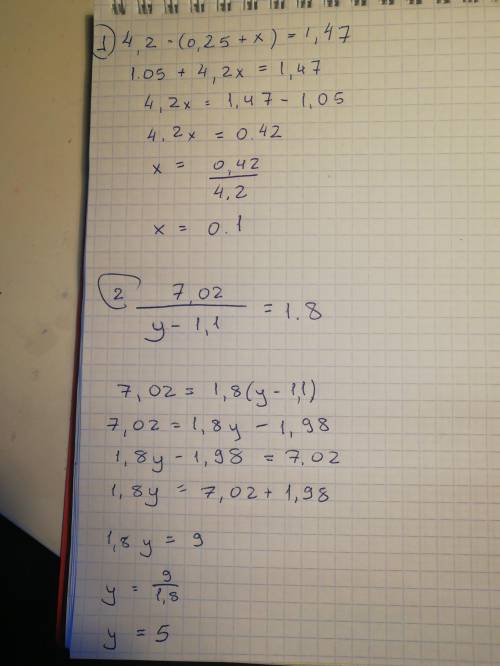 1) 4,2 · (0,25 + x) = 1,47
1.05 + 4,2x = 1,47
4,2x = 1,47 - 1,05
4,2x = 0.42
x = 0,42/4,2
x = 0.1
2 7,02/(y - 1,1) = 1.8
7,02 = 1,8(y - 1,1)
7,02 = 1,8y - 1,98
1,8y - 1,98 = 7,02
1,8y = 7,02 + 1,98
1,8y = 9
y = 9/1,8
y = 5